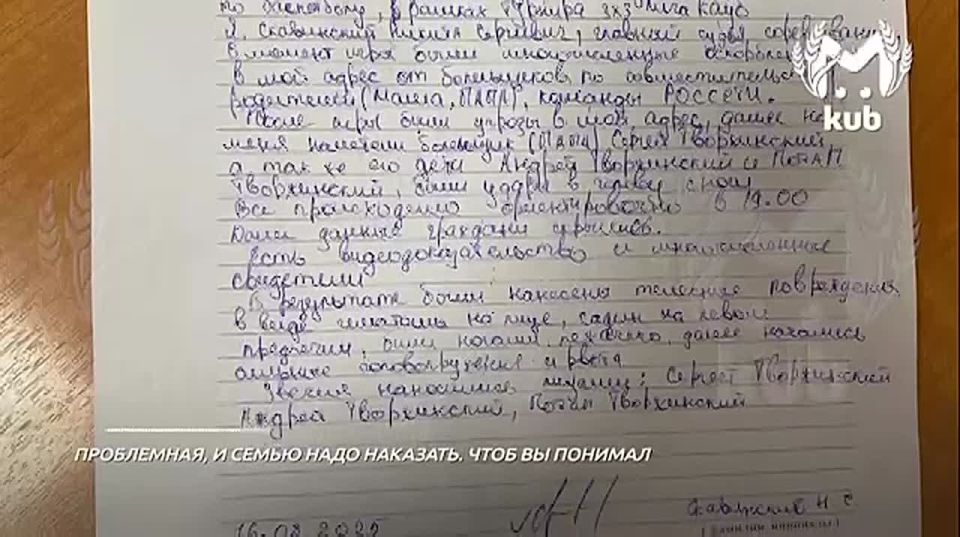 по баскетболу, в рамках турнира 3х3 Лига
Я, Скавинский Никита Сергеевич, главный судья соревнований,
в момент игры были многочисленные оскорбления
в мой адрес от болельщиков по совместительству
родителей (Мама, ПАПА), команды РОССЕТИ.
После игры были угрозы в мой адрес, далее на
меня налетели болельщик (ПАПА) Сергей Творжинский
а так же его дети Андрей Творжинский и Потап
Творжинский, были удары в голову с ног
Все происходило ориентировочно в 19.00
Далее данные граждане скрылись.
Есть видеодоказательство и многочисленные
свидетели
В результате были нанесены телесные повреждения
в виде на лице, садин на левом
предплечии, били ногами, далее начались
сильные головокружения и рвота
наносившие : Сергей Творжинский
Андрей Творжинский, Потап Творжинский
kub
ПРОБЛЕМНАЯ, И СЕМЬЮ НАДО НАКАЗАТЬ. ЧТОБ ВЫ ПОНИМАЛ
Скавинский Н С